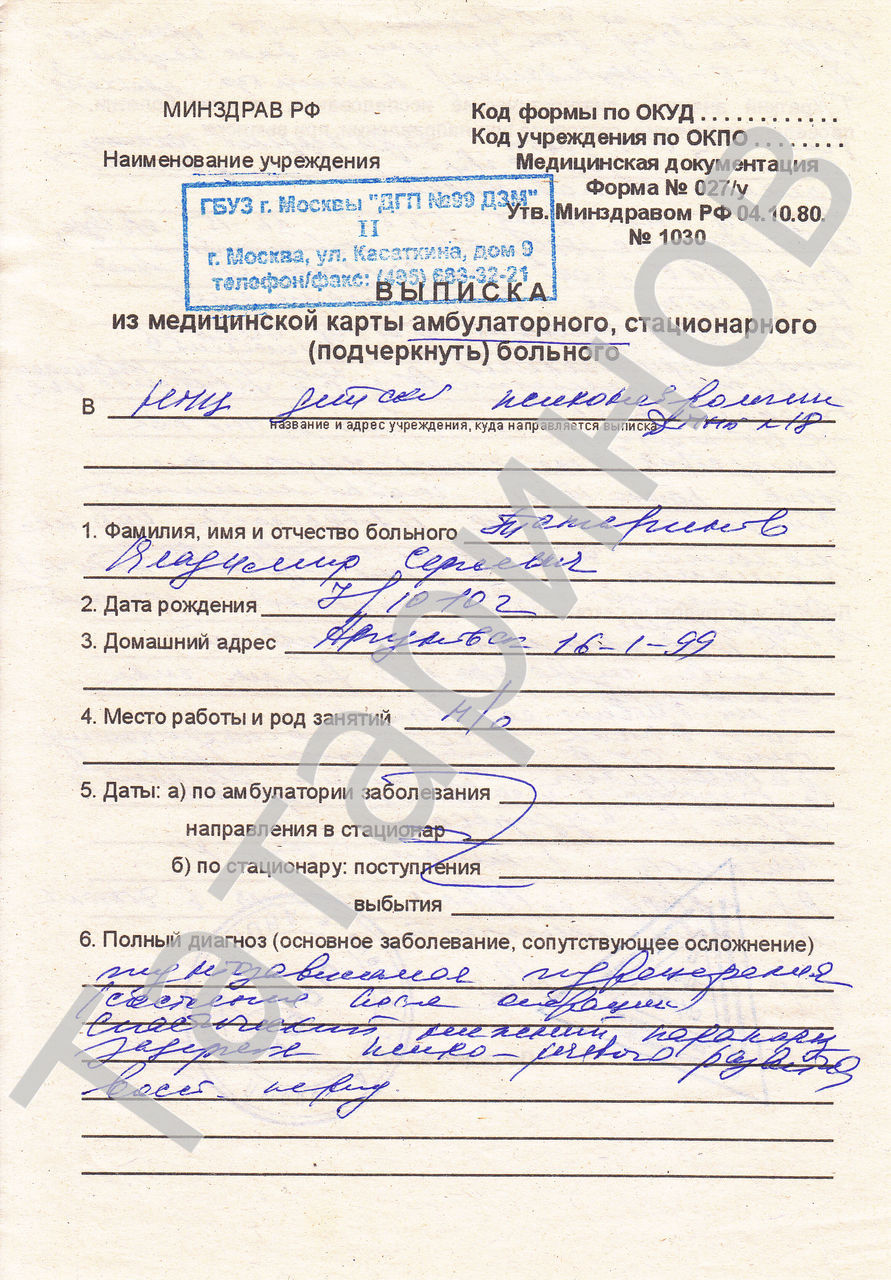 МИНЗДРАВ РФ
Наименование учреждения
Код формы по ОКУД . . . . . . . . . . . . .
Код учреждения по ОКПО . . . . . . . . .
Медицинская документация
Форма № 027/у
Утв. Минздравом РФ 04.10.80.
№ 1030
ГБУЗ г. Москвы "ДГП №99 ДЗМ"
II
г. Москва, ул. Касаткина, дом 9
телефон/факс: (495) 683-32-21
ВЫПИСКА
из медицинской карты амбулаторного, стационарного
(подчеркнуть) больного
В НПЦ детской психоневрологии
название и адрес учреждения, куда направляется выписка
№ 18
1. Фамилия, имя и отчество больного Татаринов
Владимир Сергеевич
2. Дата рождения 10 10 г
3. Домашний адрес 16-1-99
4. Место работы и род занятий н/о
5. Даты: а) по амбулатории заболевания
направления в стационар
б) по стационару: поступления
выбытия
6. Полный диагноз (основное заболевание, сопутствующее осложнение)
шунтозависимая гидроцефалия
(состояние после операции)
спастический нижний парапарез
задержка психо-речевого развития
восст. период.
Татаринов